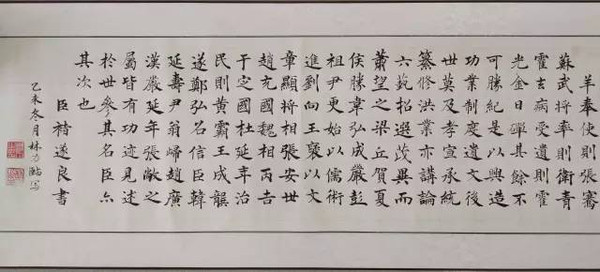 羊奉使則張騫
蘇武將率則衛青
霍去病受遺則霍
光金日磾其餘不
可勝紀是以興造
功業制度遺文後
世莫及孝宣承統
纂脩洪業亦講論
六藝招選茂異而
蕭望之梁丘賀夏
侯勝韋弘成嚴彭
祖尹更始以儒術
進劉向王襃以文
章顯將相張安世
趙充國魏相丙吉
于定國杜延年治
民則黃霸王成龔
遂鄭弘召信臣韓
延壽尹翁歸趙廣
漢嚴延年張敞之
屬皆有功迹見述
於世參其名臣亦
其次也
臣褚遂良書
乙未冬月林